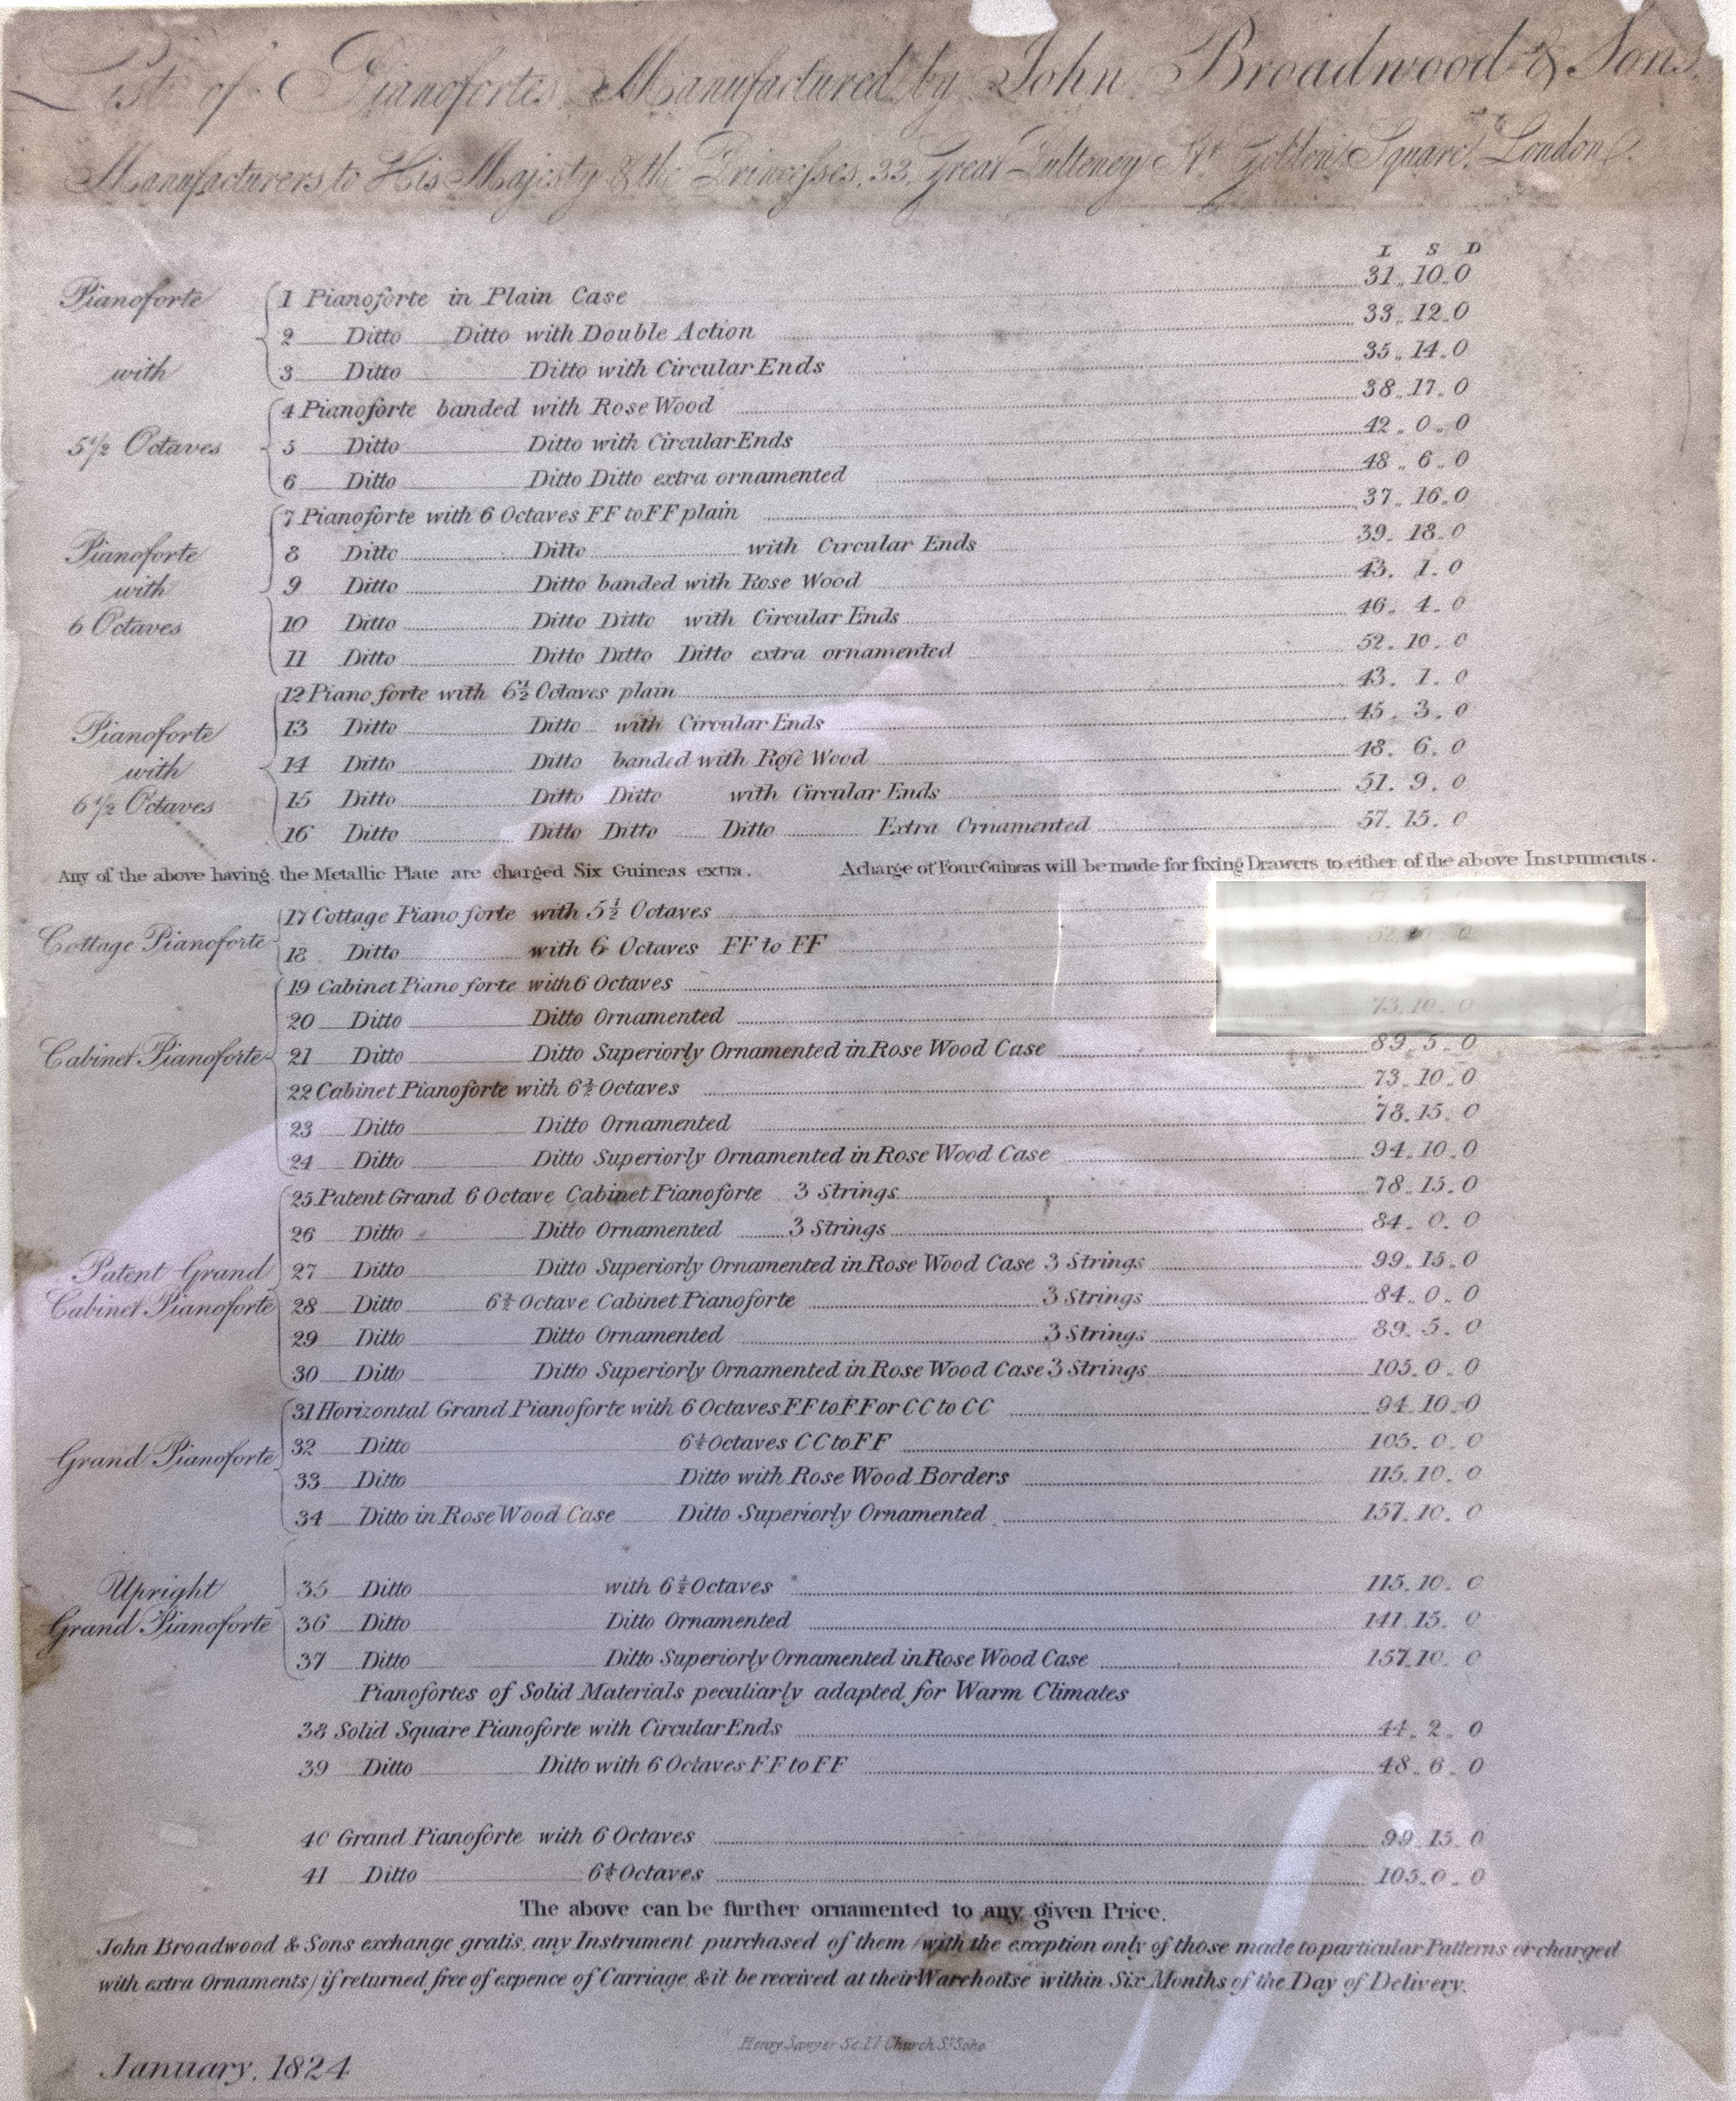 List of Pianofortes Manufactured by John Broadwood & Sons
Manufacturers to His Majesty & the Princesses, 33, Great Pulteney St. Golden Square, London.
L S D
Pianoforte with 5 1/2 Octaves
1 Pianoforte in Plain Case 31,, 10,, 0
2 Ditto Ditto with Double Action 33,, 12,, 0
3 Ditto Ditto with Circular Ends 35,, 14,, 0
4 Pianoforte banded with Rose Wood 38,, 17,, 0
5 Ditto Ditto with Circular Ends 42,, 0,, 0
6 Ditto Ditto Ditto extra ornamented 48,, 6,, 0
Pianoforte with 6 Octaves
7 Pianoforte with 6 Octaves FF to FF plain 37,, 16,, 0
8 Ditto Ditto with Circular Ends 39,, 18,, 0
9 Ditto Ditto banded with Rose Wood 43,, 1,, 0
10 Ditto Ditto Ditto with Circular Ends 46,, 4,, 0
11 Ditto Ditto Ditto Ditto extra ornamented 52,, 10,, 0
Pianoforte with 6 1/2 Octaves
12 Piano forte with 6 1/2 Octaves plain 43,, 1,, 0
13 Ditto Ditto with Circular Ends 45,, 3,, 0
14 Ditto Ditto banded with Rose Wood 48,, 6,, 0
15 Ditto Ditto Ditto with Circular Ends 51,, 9,, 0
16 Ditto Ditto Ditto Ditto Extra Ornamented 57,, 15,, 0
Any of the above having the Metallic Plate are charged Six Guineas extra. A charge of Four Guineas will be made for fixing Drawers to either of the above Instruments.
Cottage Pianoforte
17 Cottage Piano forte with 5 1/2 Octaves
18 Ditto with 6 Octaves FF to FF
Cabinet Pianoforte
19 Cabinet Piano forte with 6 Octaves
20 Ditto Ditto Ornamented 73,, 10,, 0
21 Ditto Ditto Superiorly Ornamented in Rose Wood Case 89,, 5,, 0
22 Cabinet Pianoforte with 6 1/2 Octaves 73,, 10,, 0
23 Ditto Ditto Ornamented 78,, 15,, 0
24 Ditto Ditto Superiorly Ornamented in Rose Wood Case 94,, 10,, 0
Patent Grand Cabinet Pianoforte
25 Patent Grand 6 Octave Cabinet Pianoforte 3 Strings 78,, 15,, 0
26 Ditto Ditto Ornamented 3 Strings 84,, 0,, 0
27 Ditto Ditto Superiorly Ornamented in Rose Wood Case 3 Strings 99,, 15,, 0
28 Ditto 6 1/2 Octave Cabinet Pianoforte 3 Strings 84,, 0,, 0
29 Ditto Ditto Ornamented 3 Strings 89,, 5,, 0
30 Ditto Ditto Superiorly Ornamented in Rose Wood Case 3 Strings 105,, 0,, 0
Grand Pianoforte
31 Horizontal Grand Pianoforte with 6 Octaves FF to FF or CC to CC 94,, 10,, 0
32 Ditto 6 1/2 Octaves CC to FF 105,, 0,, 0
33 Ditto Ditto with Rose Wood Borders 115,, 10,, 0
34 Ditto in Rose Wood Case Ditto Superiorly Ornamented 157,, 10,, 0
Upright Grand Pianoforte
35 Ditto with 6 1/2 Octaves 115,, 10,, 0
36 Ditto Ditto Ornamented 141,, 15,, 0
37 Ditto Ditto Superiorly Ornamented in Rose Wood Case 157,, 10,, 0
Pianofortes of Solid Materials peculiarly adapted for Warm Climates
38 Solid Square Pianoforte with Circular Ends 44,, 2,, 0
39 Ditto Ditto with 6 Octaves FF to FF 48,, 6,, 0
40 Grand Pianoforte with 6 Octaves 99,, 15,, 0
41 Ditto 6 1/2 Octaves 105,, 0,, 0
The above can be further ornamented to any given Price.
John Broadwood & Sons exchange gratis, any Instrument purchased of them (with the exception only of those made to particular Patterns or charged
with extra Ornaments) if returned free of expence of Carriage, & it be received at their Warehouse within Six Months of the Day of Delivery.
Henry Sawyer Sc. 17 Church St. Soho
January, 1824